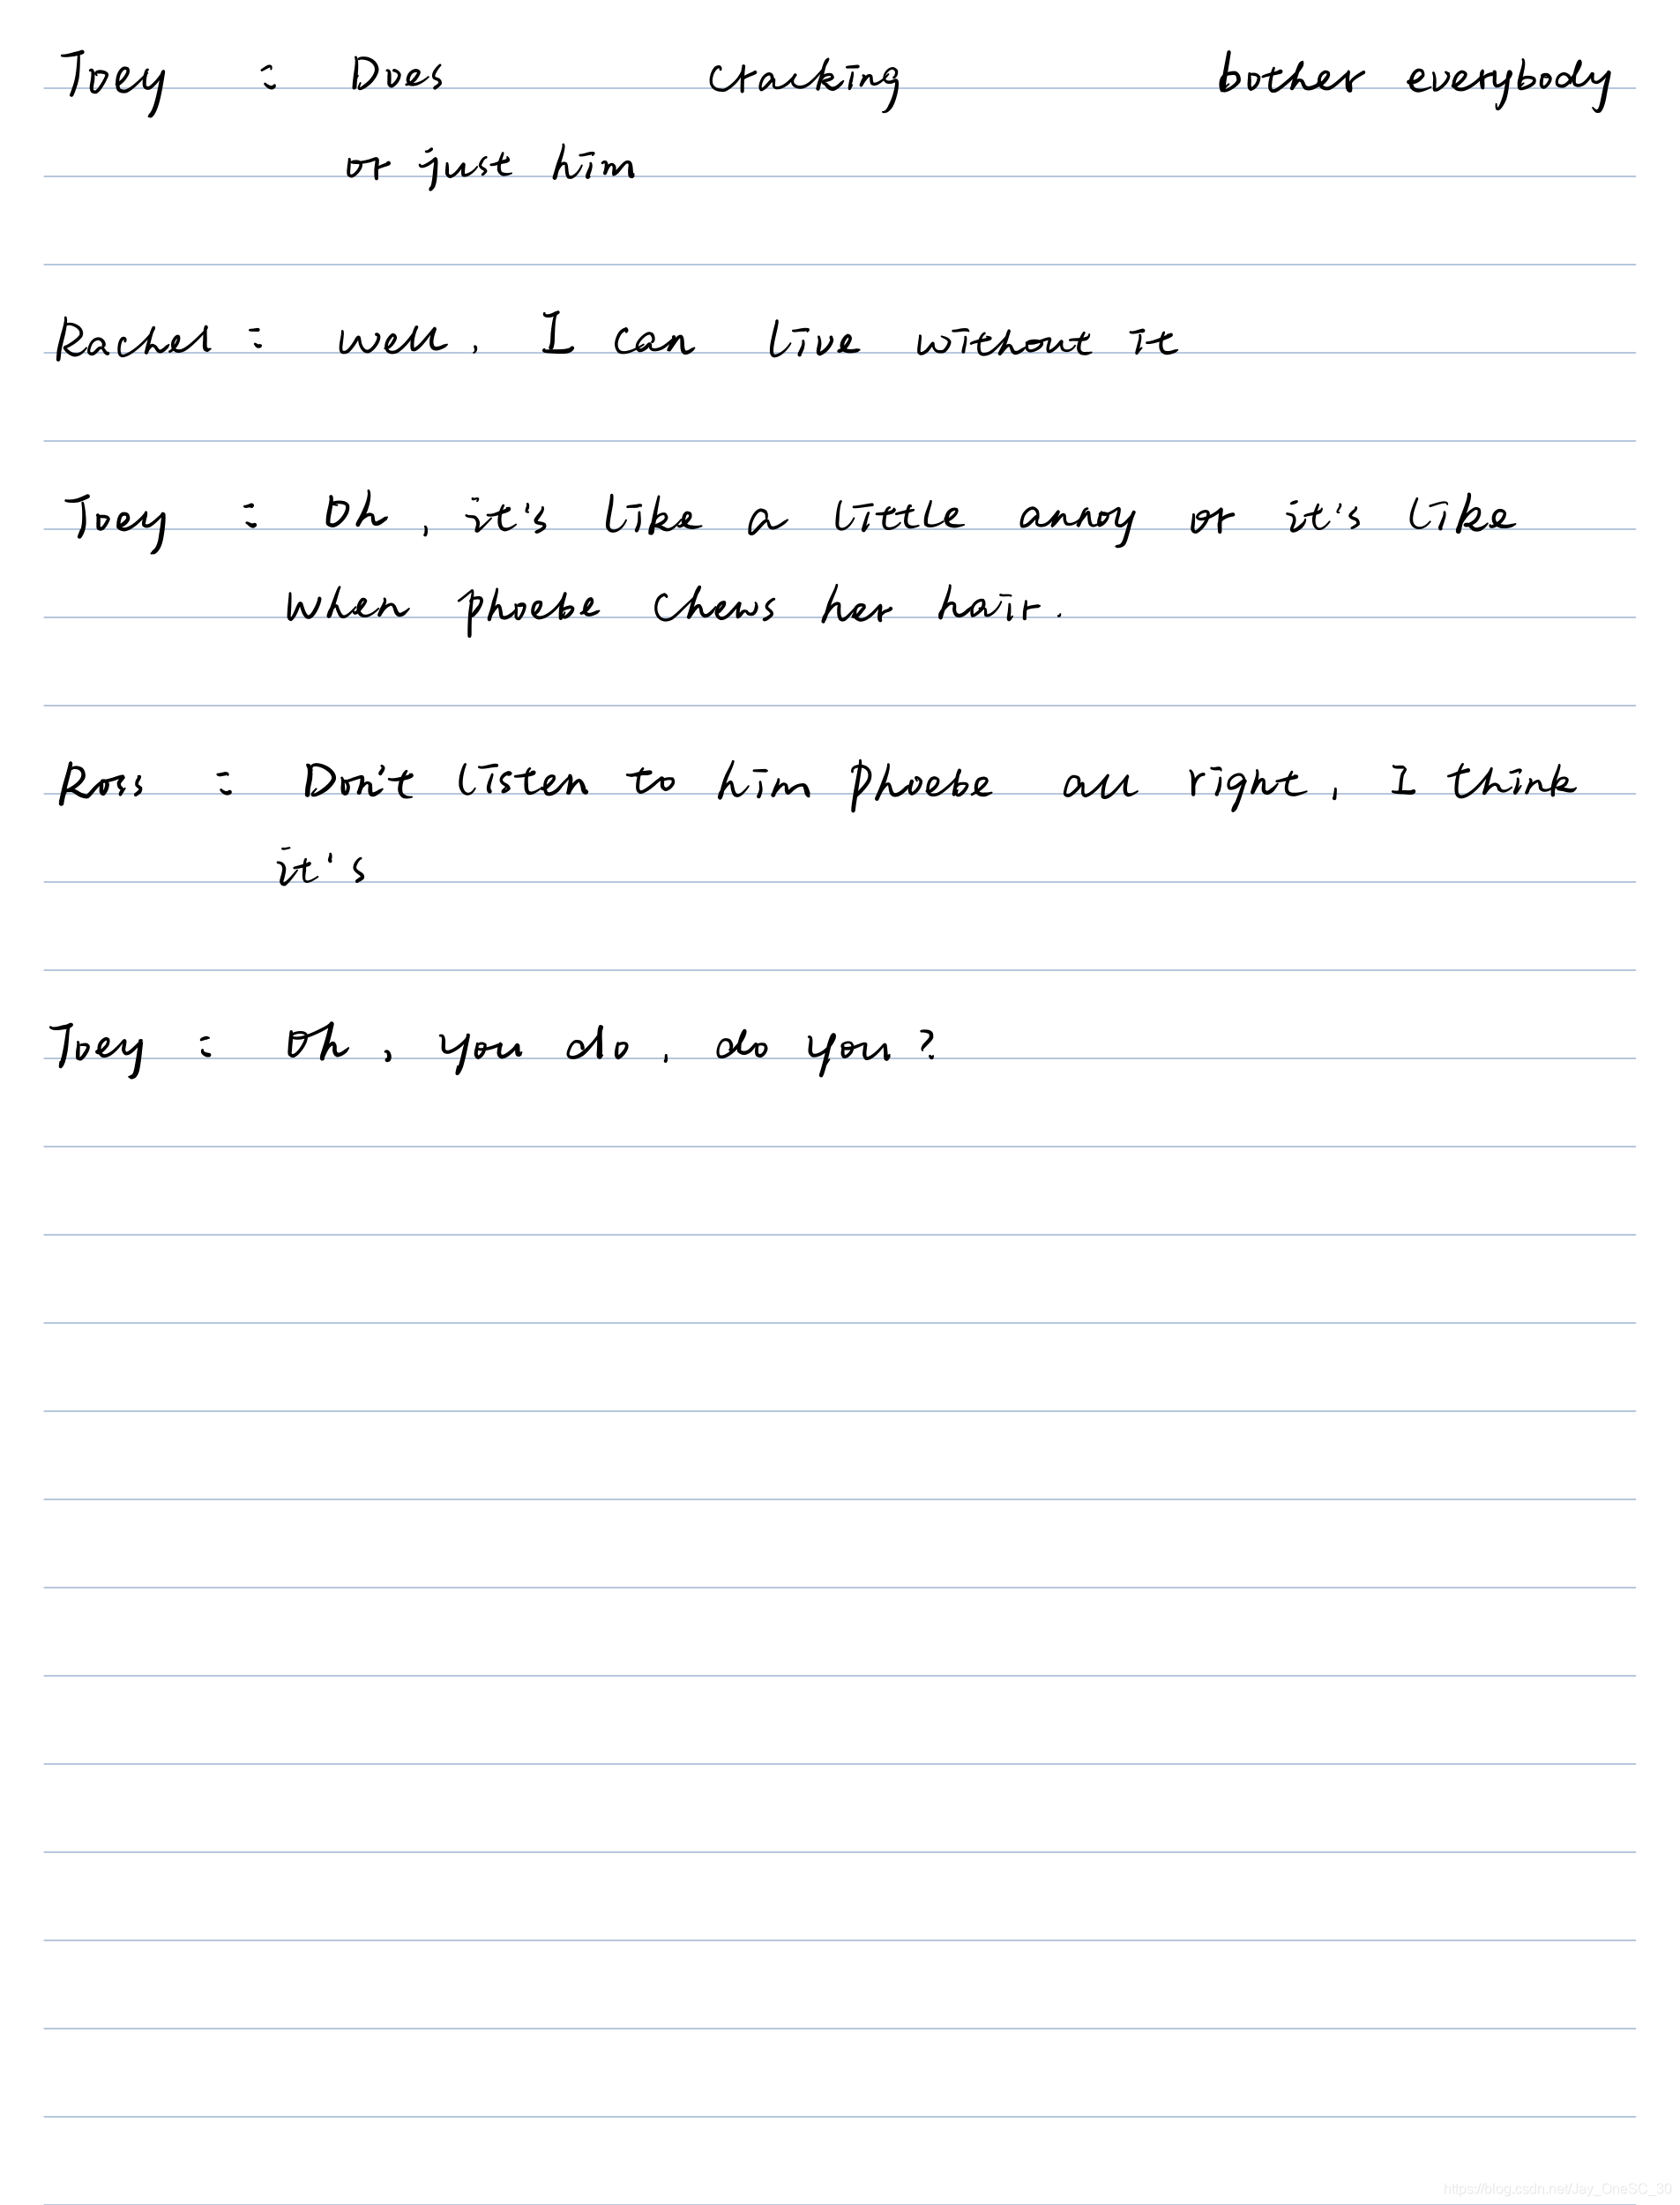 Joey : Does craking bother everybody
or just him
Rachel : Well, I can live without it
Joey : Oh, it's like a little annoy or it's like
when phoebe chews her hair.
Ross : Don't listen to him Phoebe all right, I think
it's
Joey : Oh, you do, do you?
https://blog.csdn.net/Jay_OneSC_30